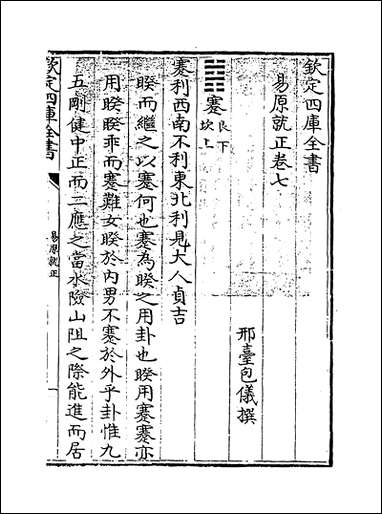 欽定四庫全書
易原就正卷七
邢臺包儀撰
䷦蹇 艮下坎上
蹇利西南不利東北利見大人貞吉
睽而繼之以蹇何也蹇為睽之用卦也睽用蹇蹇亦
用睽睽乖而蹇難女睽於内男不蹇於外乎卦惟九
五剛健中正而二應之當水險山阻之際能進而居
欽定四庫全書
易原就正
一